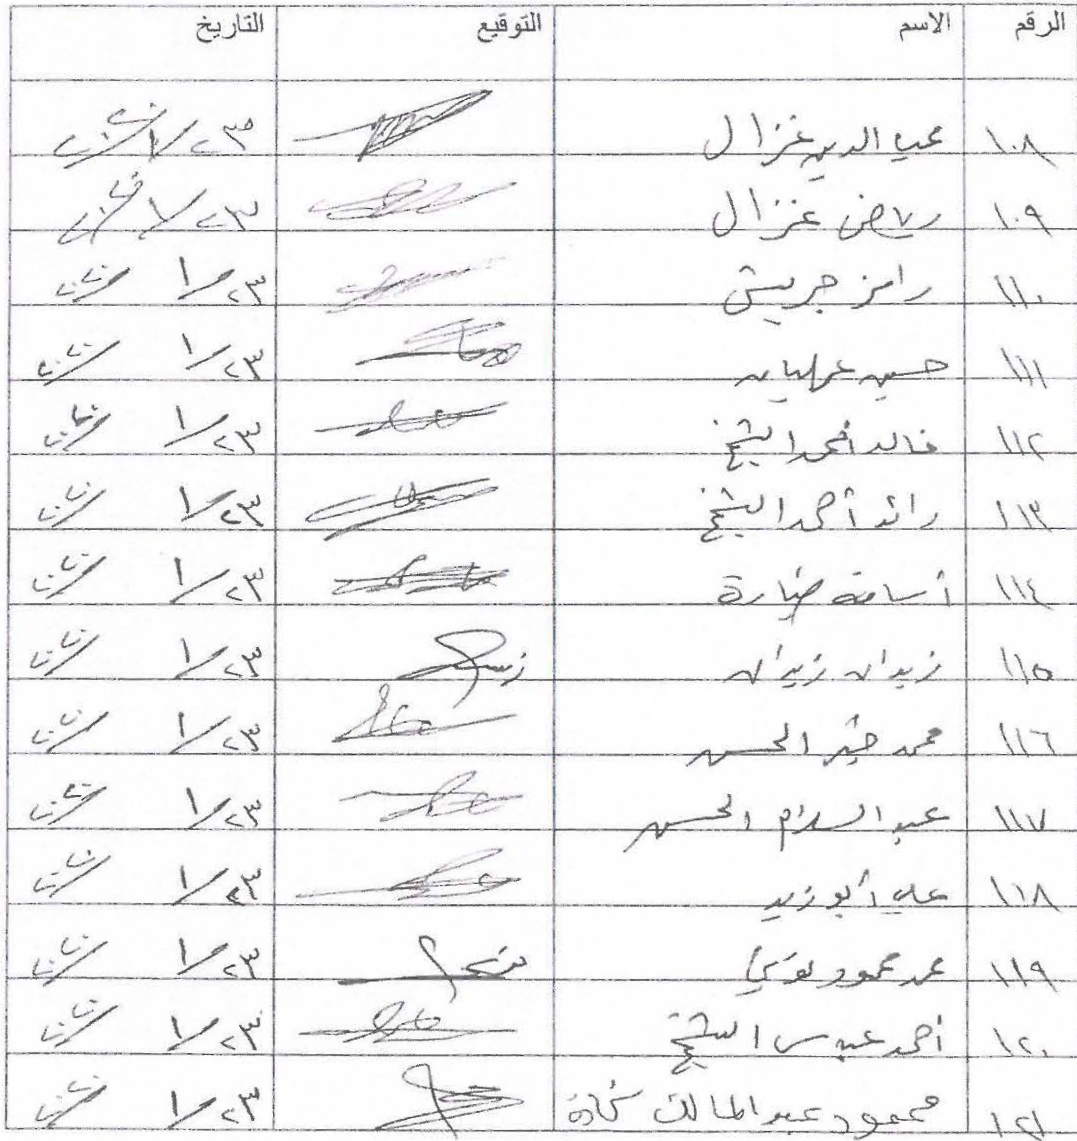 الرقم الاسم التوقيع التاريخ
١٠٨ محيا الدين غزال ٢٣/١/٢٠٢٠
١٠٩ رياض غزال ٢٣/١/٢٠٢٠
١١٠ رامز جريش ٢٣/١/٢٠٢٠
١١١ حسين ٢٣/١/٢٠٢٠
١١٢ خالد أحمد الشيخ ٢٣/١/٢٠٢٠
١١٣ رائد أحمد الشيخ ٢٣/١/٢٠٢٠
١١٤ أسامة ضيارة ٢٣/١/٢٠٢٠
١١٥ زيدان زيدان ٢٣/١/٢٠٢٠
١١٦ محمد خير الحسن ٢٣/١/٢٠٢٠
١١٧ عبد السلام الحسن ٢٣/١/٢٠٢٠
١١٨ علي أبو زيد ٢٣/١/٢٠٢٠
١١٩ محمد محمود ٢٣/١/٢٠٢٠
١٢٠ أحمد عباس الشيخ ٢٣/١/٢٠٢٠
١٢١ محمود عبد المالك ٢٣/١/٢٠٢٠